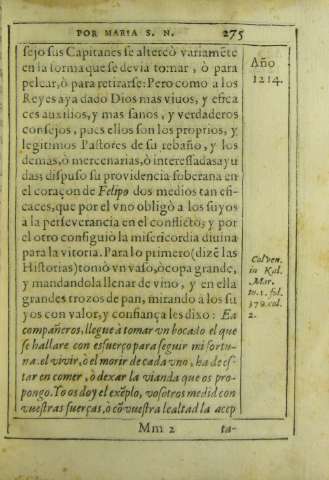 POR MARIA S. N. 275
sejo sus Capitanes se altercò variamẽte
en la forma que se devia tomar, ò para
pelear, ò para retirarse: Pero como a los
Reyes aya dado Dios mas vivos, y efica
ces auxilios, y mas sanos, y verdaderos
consejos, pues ellos son los proprios, y
legitimos Pastores de su rebaño, y los
demas, ò mercenarios, ò interessadas ayu
das; dispuso su providencia soberana en
el coraçon de Felipo dos medios tan efi-
caces, que por el vno obligò a los suyos
a la perseverancia en el conflicto; y por
el otro consiguiò la misericordia diuina
para la vitoria. Para lo primero (dizẽ las
Historias) tomò vn vaso, ò copa grande,
y mandandola llenar de vino, y en ella
grandes trozos de pan, mirando à los su
yos con valor, y confiança les dixo: Ea
compañeros, llegue à tomar vn bocado el que
se hallare con esfuerço para seguir mi fortu-
na: el vivir, ò el morir de cada vno, ha de es-
tar en comer, ò dexar la vianda que os pro-
pongo. Yo os doy el exẽplo, vosotros medid con
vuestras fuerças, ò cõ vuestra lealtad la acep
Mm 2 ta-
Año
1214.
Calven.
in Kal.
Mar.
to. 1. fol.
379. col.
2.